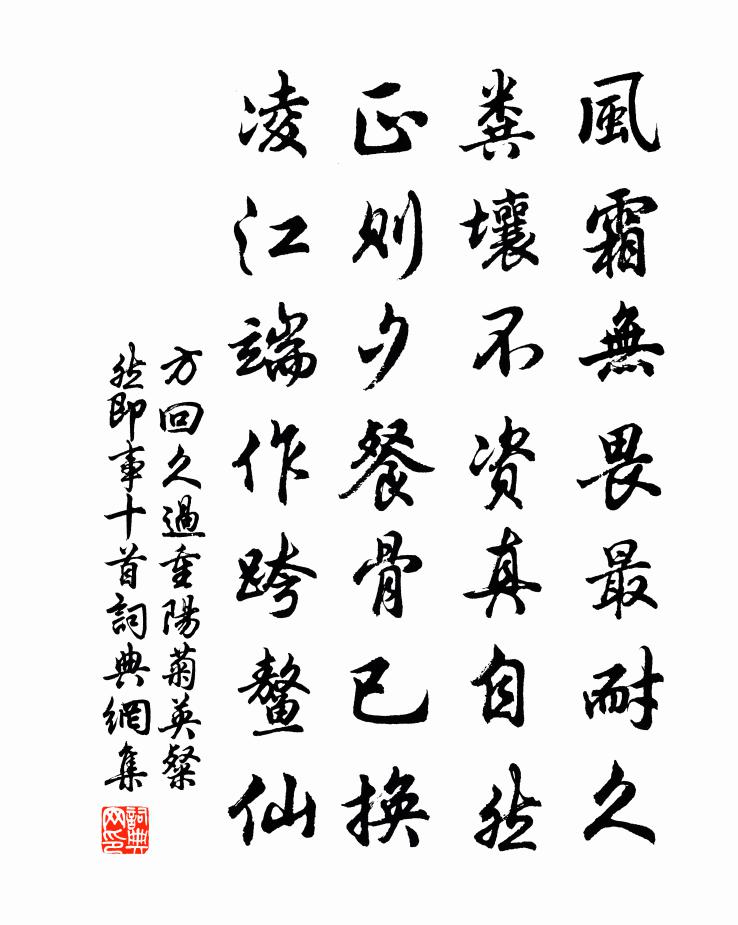 風霜無畏最耐久
糞壤不資真自然
正則夕餐骨已換
凌江端作跨鰲仙
方回久過重陽菊英粲
然即事十首詞典網集
詞典
网印